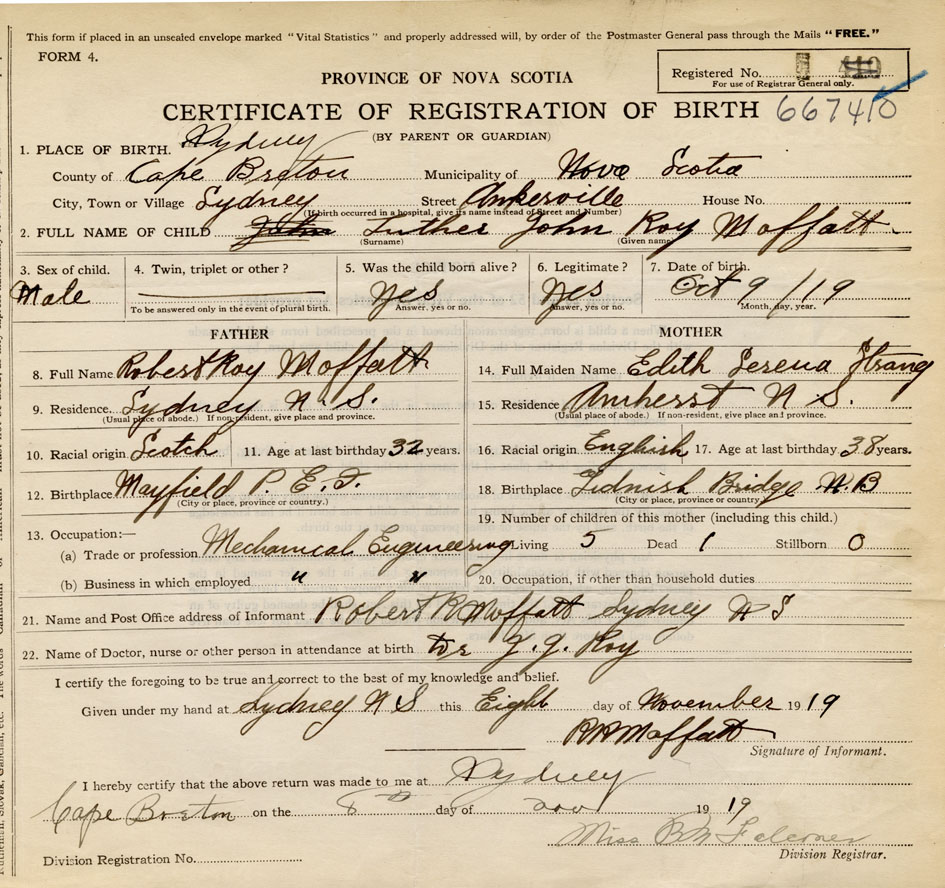 This form if placed in an unsealed envelope marked "Vital Statistics" and properly addressed will, by order of the Postmaster General pass through the Mails "FREE."
FORM 4.
Registered No.
For use of Registrar General only.
PROVINCE OF NOVA SCOTIA
CERTIFICATE OF REGISTRATION OF BIRTH 667410
(BY PARENT OR GUARDIAN)
1. PLACE OF BIRTH. Sydney
County of Cape Breton Municipality of Nova Scotia
City, Town or Village Sydney Street Ankerville House No.
(If birth occurred in a hospital, give its name instead of Street and Number)
2. FULL NAME OF CHILD John Luther John Roy Moffatt
(Surname) (Given name)
3. Sex of child. 4. Twin, triplet or other? 5. Was the child born alive? 6. Legitimate? 7. Date of birth.
Male yes yes Oct 9/19
To be answered only in the event of plural birth. Answer, yes or no. Answer, yes or no. Month, day, year.
FATHER MOTHER
8. Full Name Robert Roy Moffatt 14. Full Maiden Name Edith Serena Strang
9. Residence. Sydney N. S. 15. Residence Amherst N S.
(Usual place of abode.) If non-resident, give place and province. (Usual place of abode.) If non-resident, give place and province.
10. Racial origin Scotch 11. Age at last birthday 32 years. 16. Racial origin English 17. Age at last birthday 38 years.
12. Birthplace Mayfield P. E. I. 18. Birthplace Tidnish Bridge N.B
(City or place, province or country.) (City or place, province or country)
13. Occupation:— 19. Number of children of this mother (including this child.)
(a) Trade or profession Mechanical Engineering Living 5 Dead 1 Stillborn 0
(b) Business in which employed " " 20. Occupation, if other than household duties
21. Name and Post Office address of Informant Robert R Moffatt Sydney N S
22. Name of Doctor, nurse or other person in attendance at birth J. J. Roy
I certify the foregoing to be true and correct to the best of my knowledge and belief.
Given under my hand at Sydney N S this Eight day of November 1919
R R Moffatt
Signature of Informant.
I hereby certify that the above return was made to me at Sydney
Cape Breton on the 8th day of nov 1919
Miss Falconer
Division Registration No. Division Registrar.